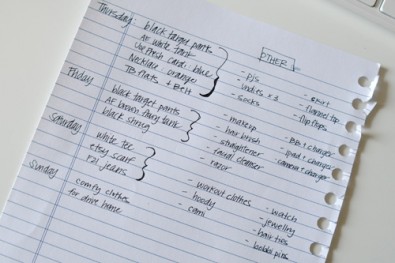 Thursday
black target pants
AE white tank
Necklace - orange
TB flats + Belt
Friday
black target pants
AE brown tank
black
Saturday
white tee
etsy scarf
F21 jeans
Sunday
comfy clothes
for drive home
OTHER
- pjs
- undies x 3
- socks
- makeup
- hair brush
- straightener
- facial cleanser
- razor
- workout clothes
- hoody
- cami
- skirt
- flannel top
- flip flops
- BB + charger
- ipad + charger
- camera + charger
- watch
- jewellry
- hair ties
- bobbi pins